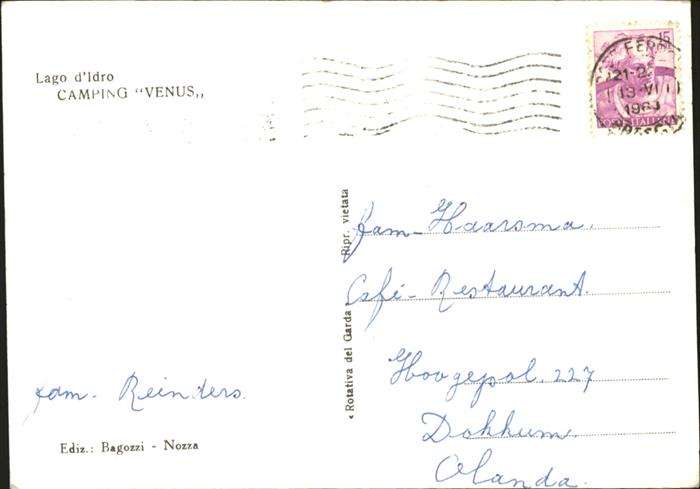 Lago d'Idro
CAMPING "VENUS„
15
21-2
13 VI
196
POSTE ITALIANE
fam- Haarsma.
Café- Restaurant.
Hoogepol. 227
Dokkum.
Olanda.
fam- Reinders.
Ediz.: Bagozzi - Nozza
« Rotativa del Garda » Ripr. vietata